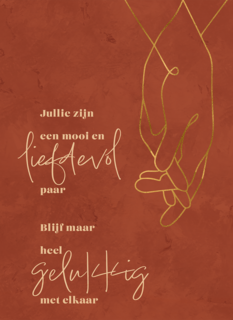 Jullie zijn
een mooi en
liefdevol
paar
Blijf maar
heel
gelukkig
met elkaar